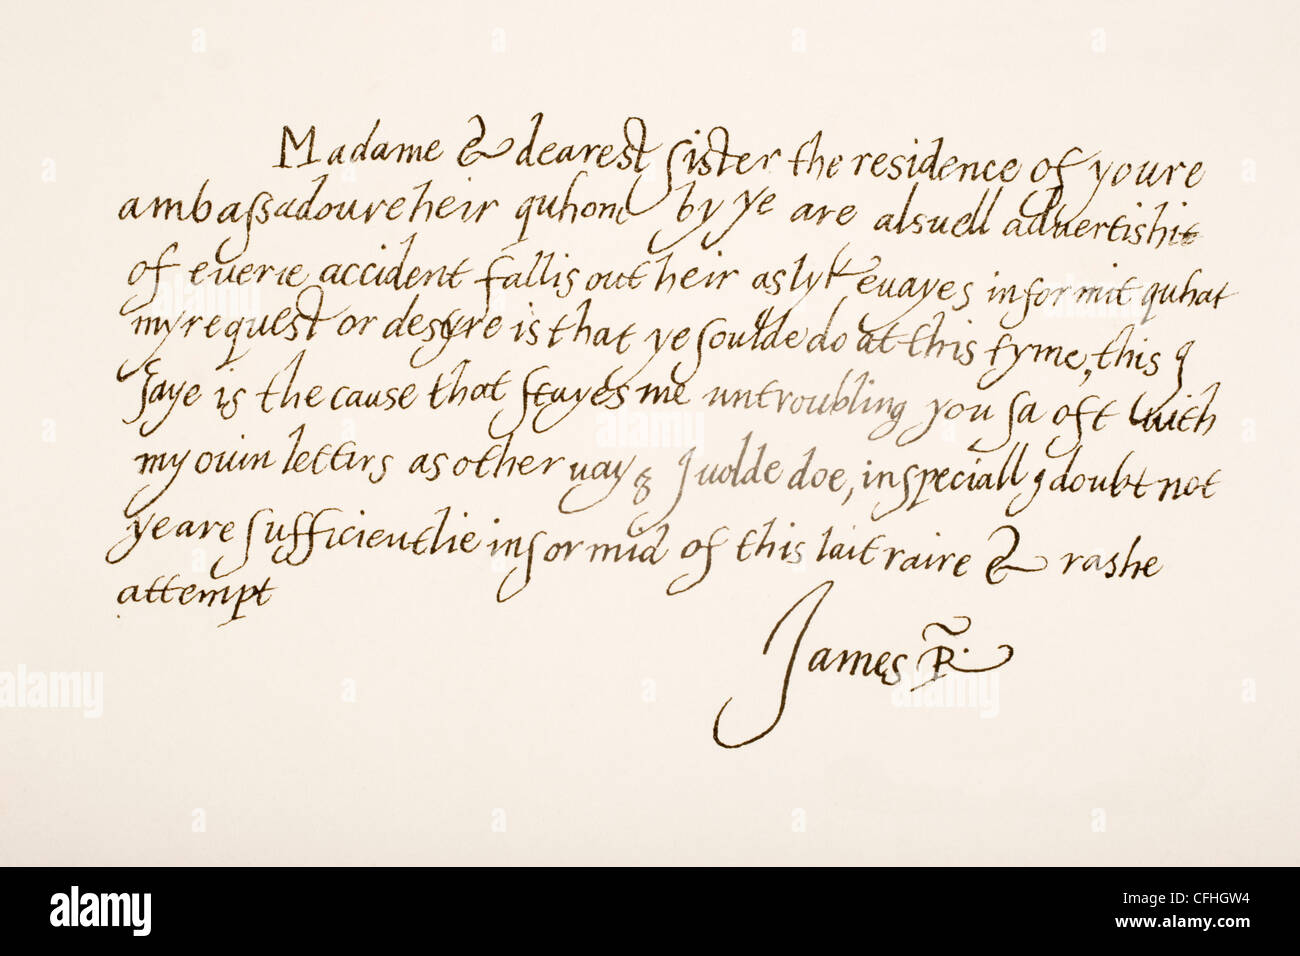 Madame & dearest sister the residence of youre
ambassadoure heir quhome by ye are alsuell advertishit
of everie accident fallis out heir as lyke wayes informit quhat
my request or desyre is that ye soulde do at this tyme, this I
saye is the cause that stayes me untroubling you sa oft with
my owin letters as other vayz I wolde doe, in speciall I doubt not
ye are sufficientlie informid of this lait raire & rashe
attempt
James R.
alamy
Image ID: CFHGW4
www.alamy.com